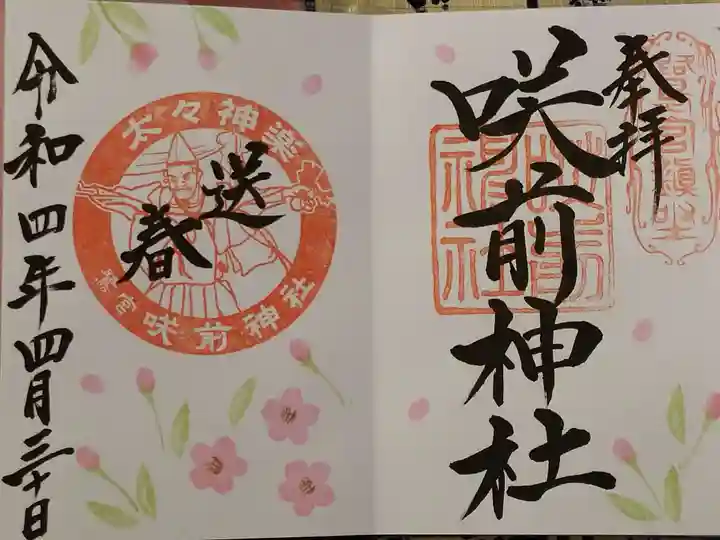 奉拝
咲前神社
咲前神社
太々神楽
送春
鷺宮咲前神社
令和四年四月三十日